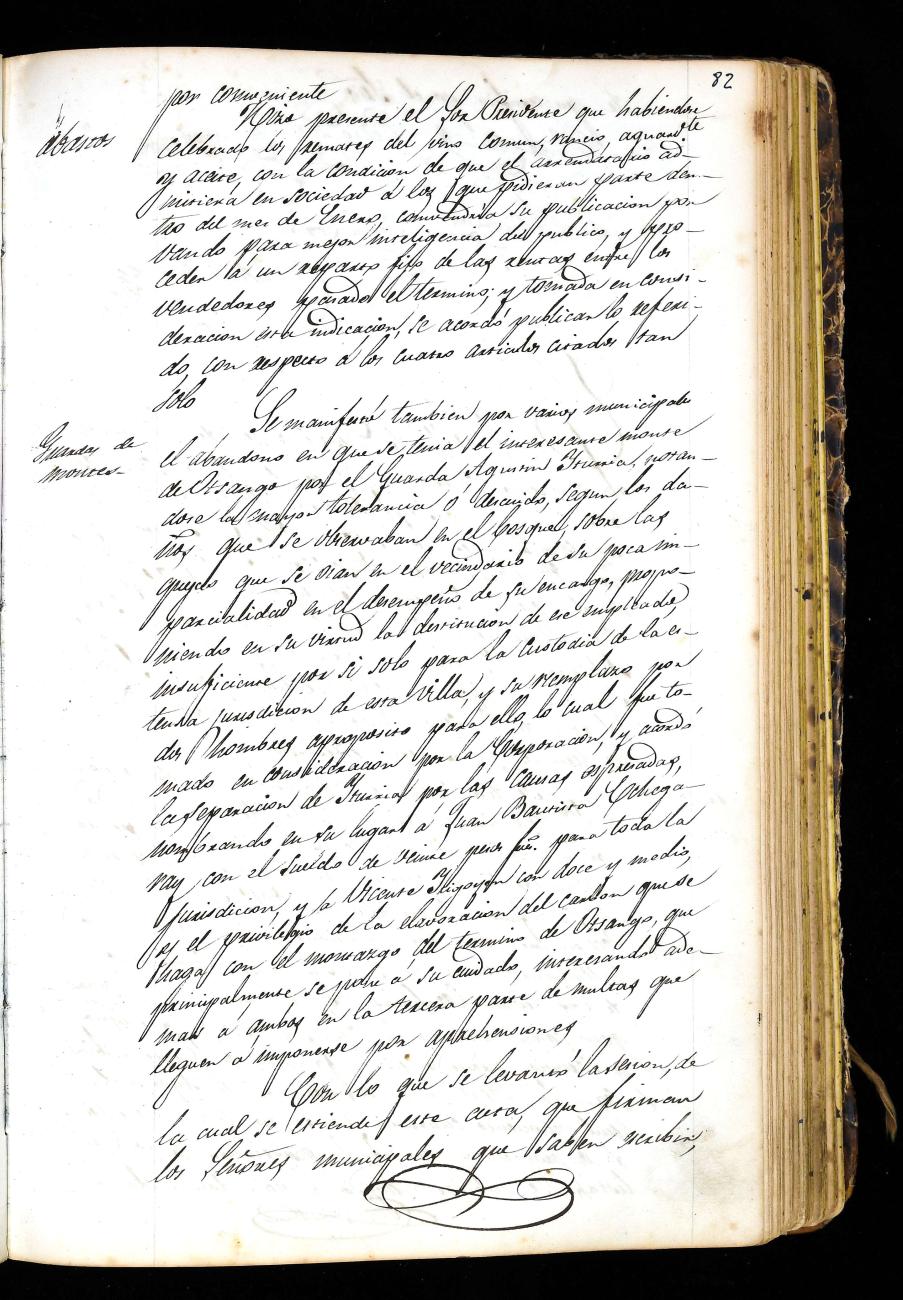 82
por conveniente
Abastos
Hizo presente el Sor Presidente que habiendose
celebrado los remates del vino comun, rancio, aguard.te
y aceite, con la condicion de que el arrendatario ad-
mitiera en sociedad á los que pidieran parte den-
tro del mes de Enero, convendria su publicacion por
vando para mejor inteligencia del publico, y pro-
ceder á un reparto fijo de las rentas entre los
vendedores pasado el termino; y tomada en consi-
deracion esta indicacion, se acordó publicar lo referi-
do, con respecto á los cuatro articulos citados tan
solo
Guardas de
montes
Se manifestó tambien por varios municipales
el abandono en que se tenia el interesante monte
de Osango por el Guarda Agustin Yturria, notan-
dose la mayor tolerancia ó descuido, segun los da-
ños que se observaban en el bosque, sobre las
quejas que se oian en el vecindario de su poca im-
parcialidad en el desempeño de su encargo, propo-
niendo en su virtud la destitucion de ese empleado,
insuficiente por si solo para la custodia de la es-
tensa jurisdicion de esta Villa, y su remplazo por
dos hombres aproposito para ello, lo cual fue to-
mado en consideracion por la Corporacion, y acordó
la separacion de Yturria por las causas espresadas,
nombrando en su lugar á Juan Bautista Echega-
ray con el sueldo de veinte pesos fu.s para toda la
jurisdicion, y a Vicente Yrigoyen con doce y medio,
y el privilegio de la elavoracion del carbon que se
haga con el montazgo del termino de Osango, que
principalmente se pone á su cuidado, interesando ade-
mas á ambos en la tercera parte de multas que
lleguen á imponerse por aprehensiones
Con lo que se levantó la sesion, de
la cual se estiende este acta, que firman
los Señores municipales que saben escribir,